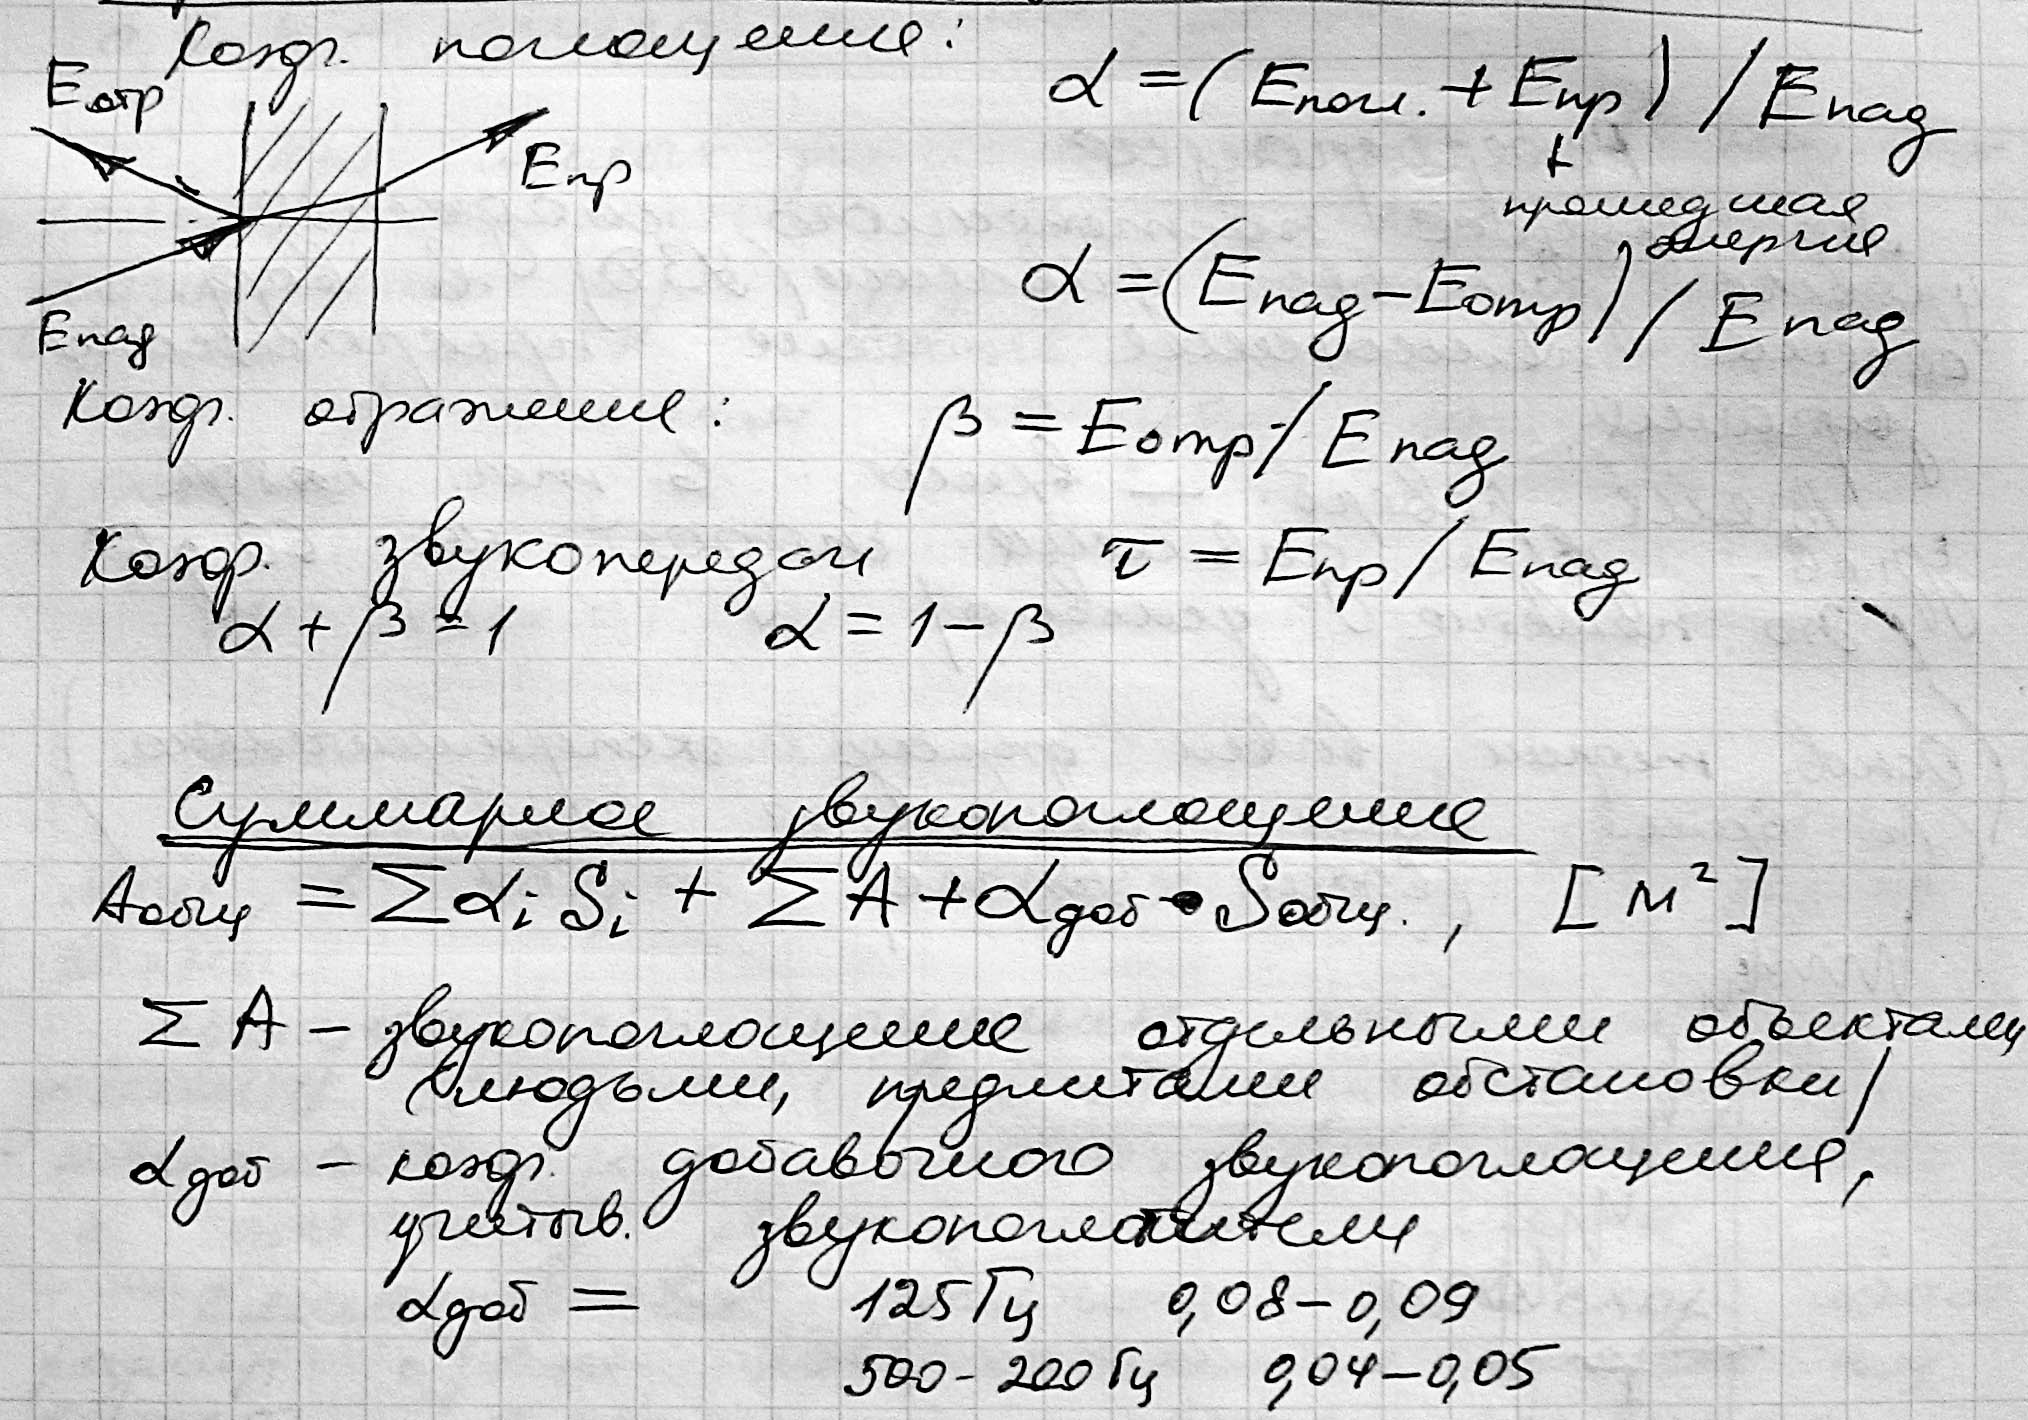 Коэф. поглощения:
Eотр
α = (Eпогл. + Eпр) / Eпад
Eпр
прошедшая
энергия
α = (Eпад – Eотр) / Eпад
Eпад
Коэф. отражения:
β = Eотр / Eпад
Коэф. звукопередачи
τ = Eпр / Eпад
α + β = 1
α = 1 – β
Суммарное звукопоглощение
Aобщ = Σ αi Si + Σ A + αдоб • Sобщ., [м²]
Σ A – звукопоглощение отдельными объектами
(людьми, предметами обстановки)
αдоб – коэф. добавочного звукопоглощения,
учитыв. звукопоглотители
αдоб = 125 Гц 0,08 – 0,09
500 – 200 Гц 0,04 – 0,05